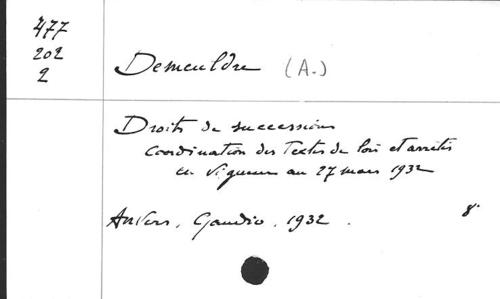 477
202
2
Demeuldre (A.)
Droits de succession
Coordination des Textes de lois et arrêtés
en vigueur au 27 mars 1932
Anvers, Gaudio, 1932.
8°